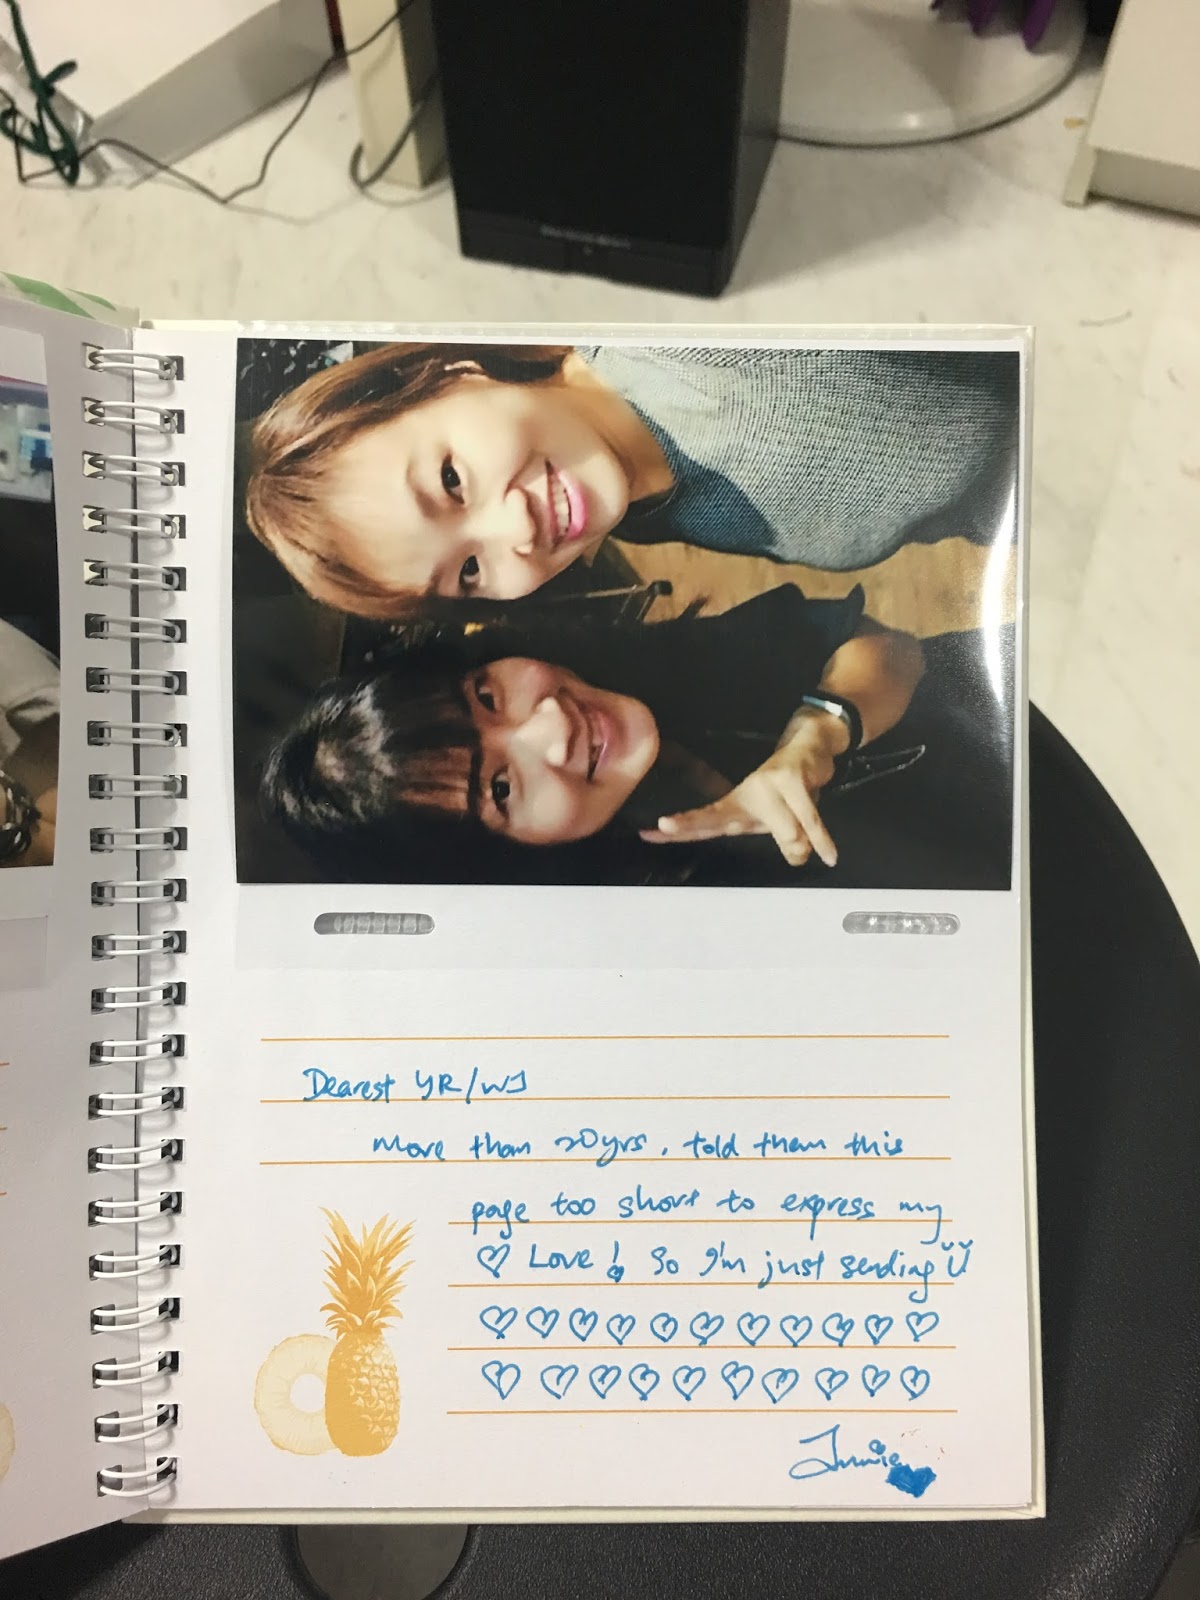 Dearest YR/WJ
More than 20yrs, told them this
page too short to express my
♡ Love! So I'm just sending Ü
♡♡♡♡♡♡♡♡♡♡♡
♡♡♡♡♡♡♡♡♡♡